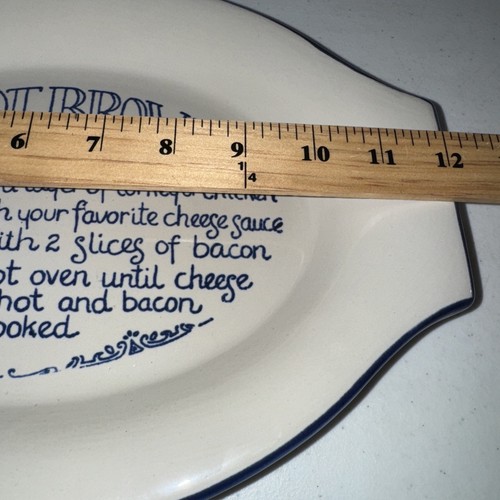 OT BROW
6 7 8 9 10 11 12
1/4
your favorite cheese sauce
ith 2 slices of bacon
ot oven until cheese
hot and bacon
ooked